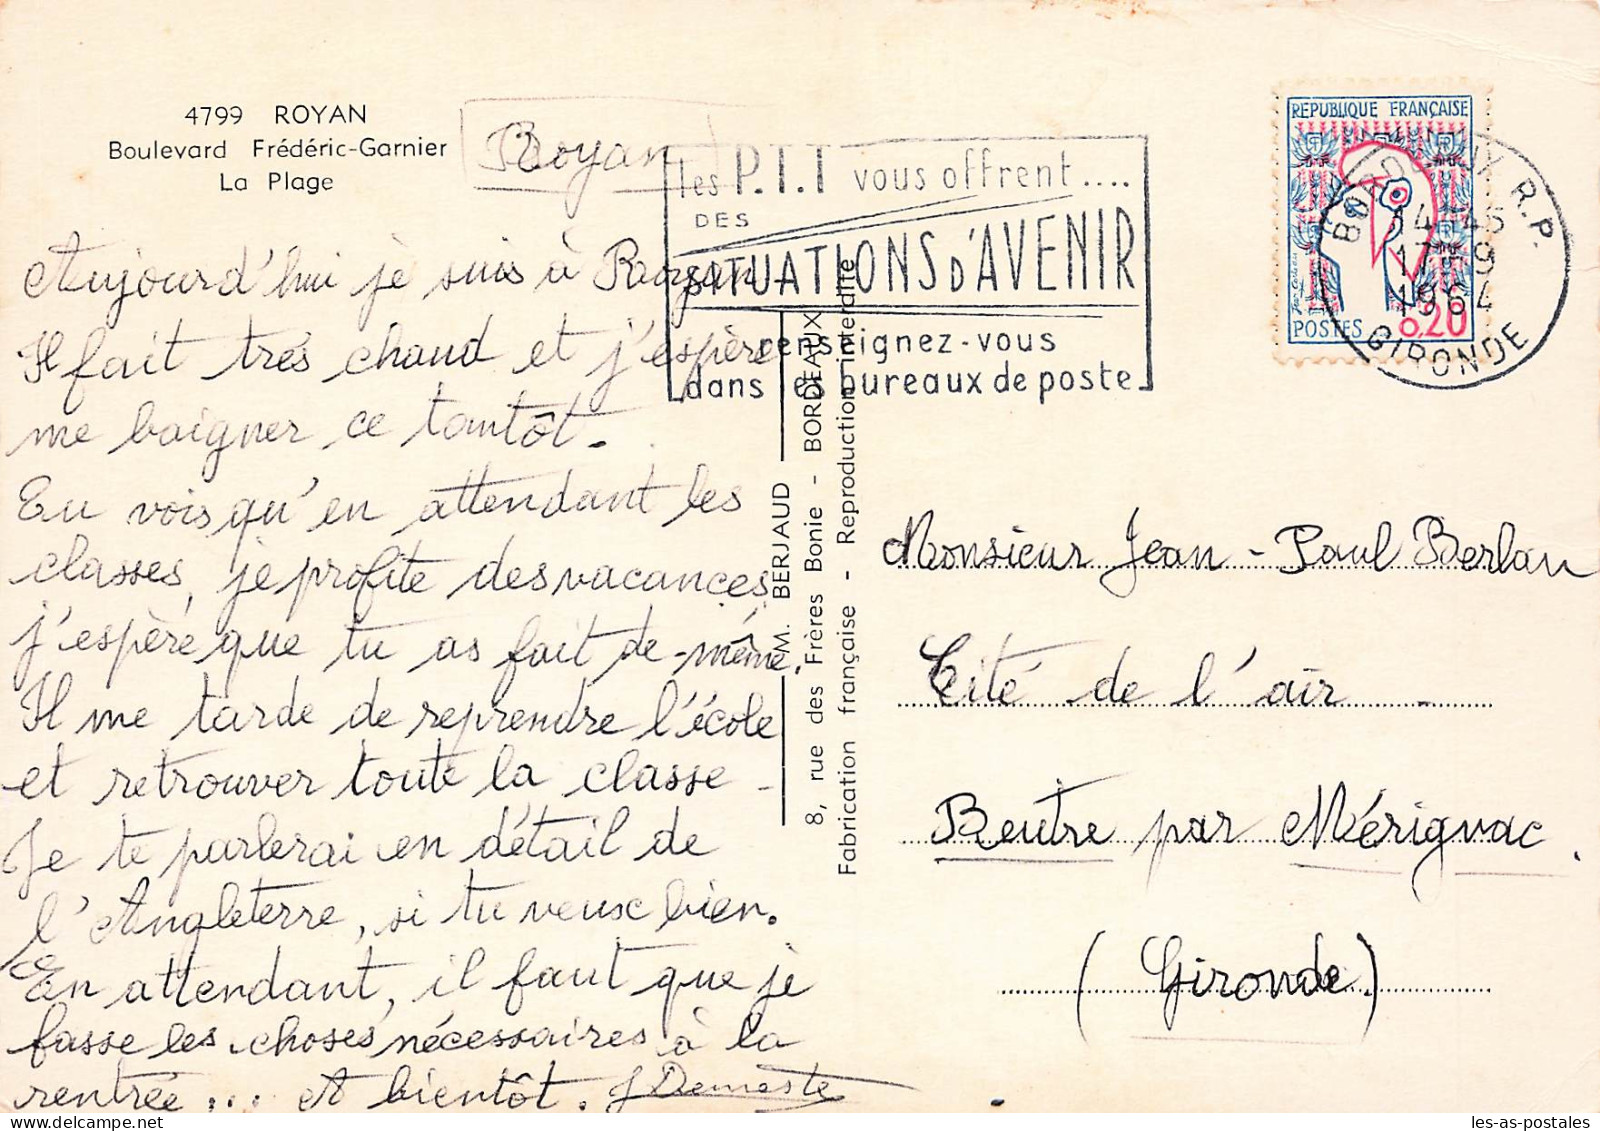 4799 ROYAN
Boulevard Frédéric-Garnier
La Plage
Royan
Aujourd'hui je suis à Royan.
Il fait très chaud et j'espère
me baigner ce tantôt.
Tu vois qu'en attendant les
classes, je profite des vacances,
j'espère que tu as fait de-même.
Il me tarde de reprendre l'école
et retrouver toute la classe -
Je te parlerai en détail de
l'Angleterre, si tu veux bien.
En attendant, il faut que je
fasse les choses nécessaires à la
rentrée... et bientôt. J Demeste
les P.T.T vous offrent....
DES
SITUATIONS D'AVENIR
renseignez-vous
dans les bureaux de poste
M. BERJAUD
8, rue des Frères Bonie - BORDEAUX
Fabrication française - Reproduction interdite
REPUBLIQUE FRANÇAISE
POSTES 0,20
BORDEAUX R.P.
14H45
17-9
1964
GIRONDE
Monsieur Jean-Paul Berlan
Cité de l'air
Beutre par Mérignac.
(Gironde)
les-as-postales